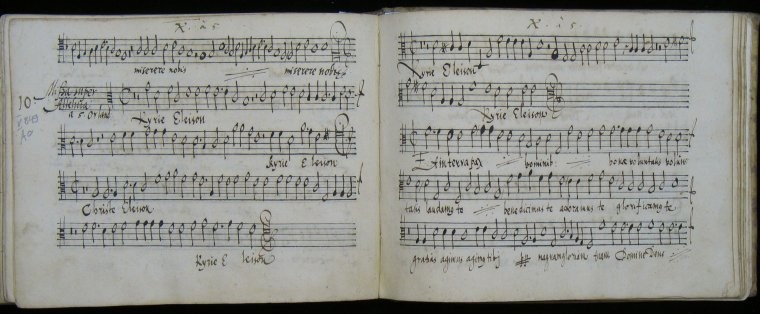 X. à 5.
miserere nobis miserere nobis
10 Missa super
a 5 Orland Kyrie Eleison
Kyrie Eleison
Christe Eleison
Kyrie Eleison
X. à 5.
Kyrie Eleison
Kyrie Eleison
Et in terra pax hominib. bonae voluntatis
laudam9 te benedicimus te adoramus te glorificam9 te
gratias agimus tibi gloriam tuam Domine Deus